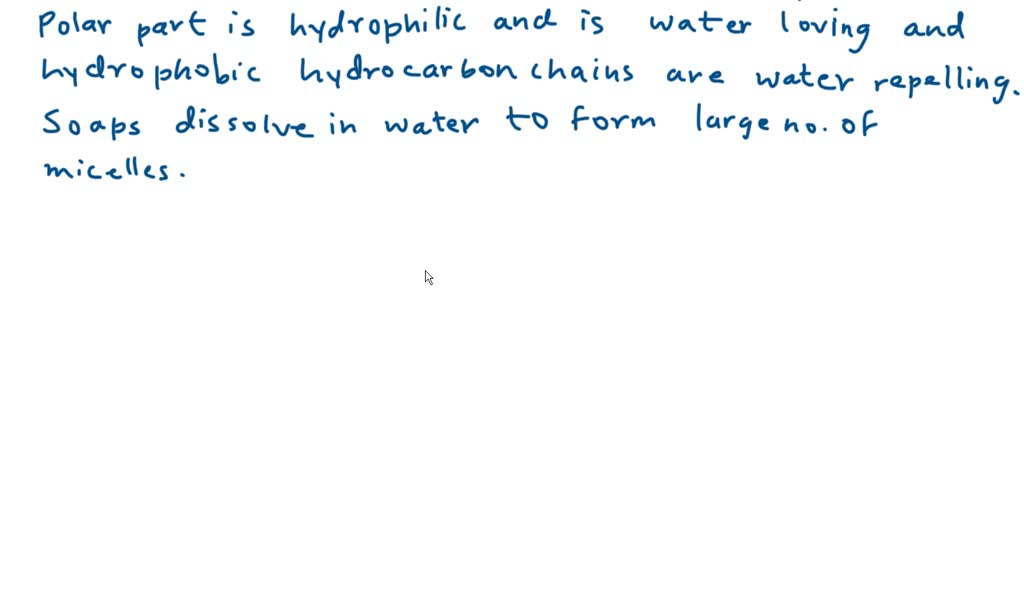 Polar part is hydrophilic and is water loving and
hydrophobic hydrocarbon chains are water repelling.
Soaps dissolve in water to form large no. of
micelles.